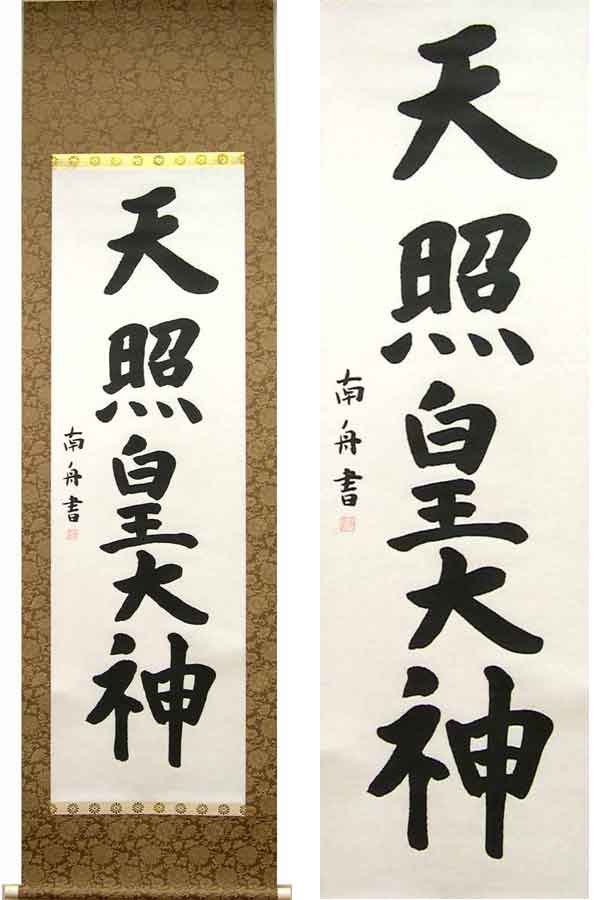 天照皇大神
南舟書
天照皇大神
南舟書